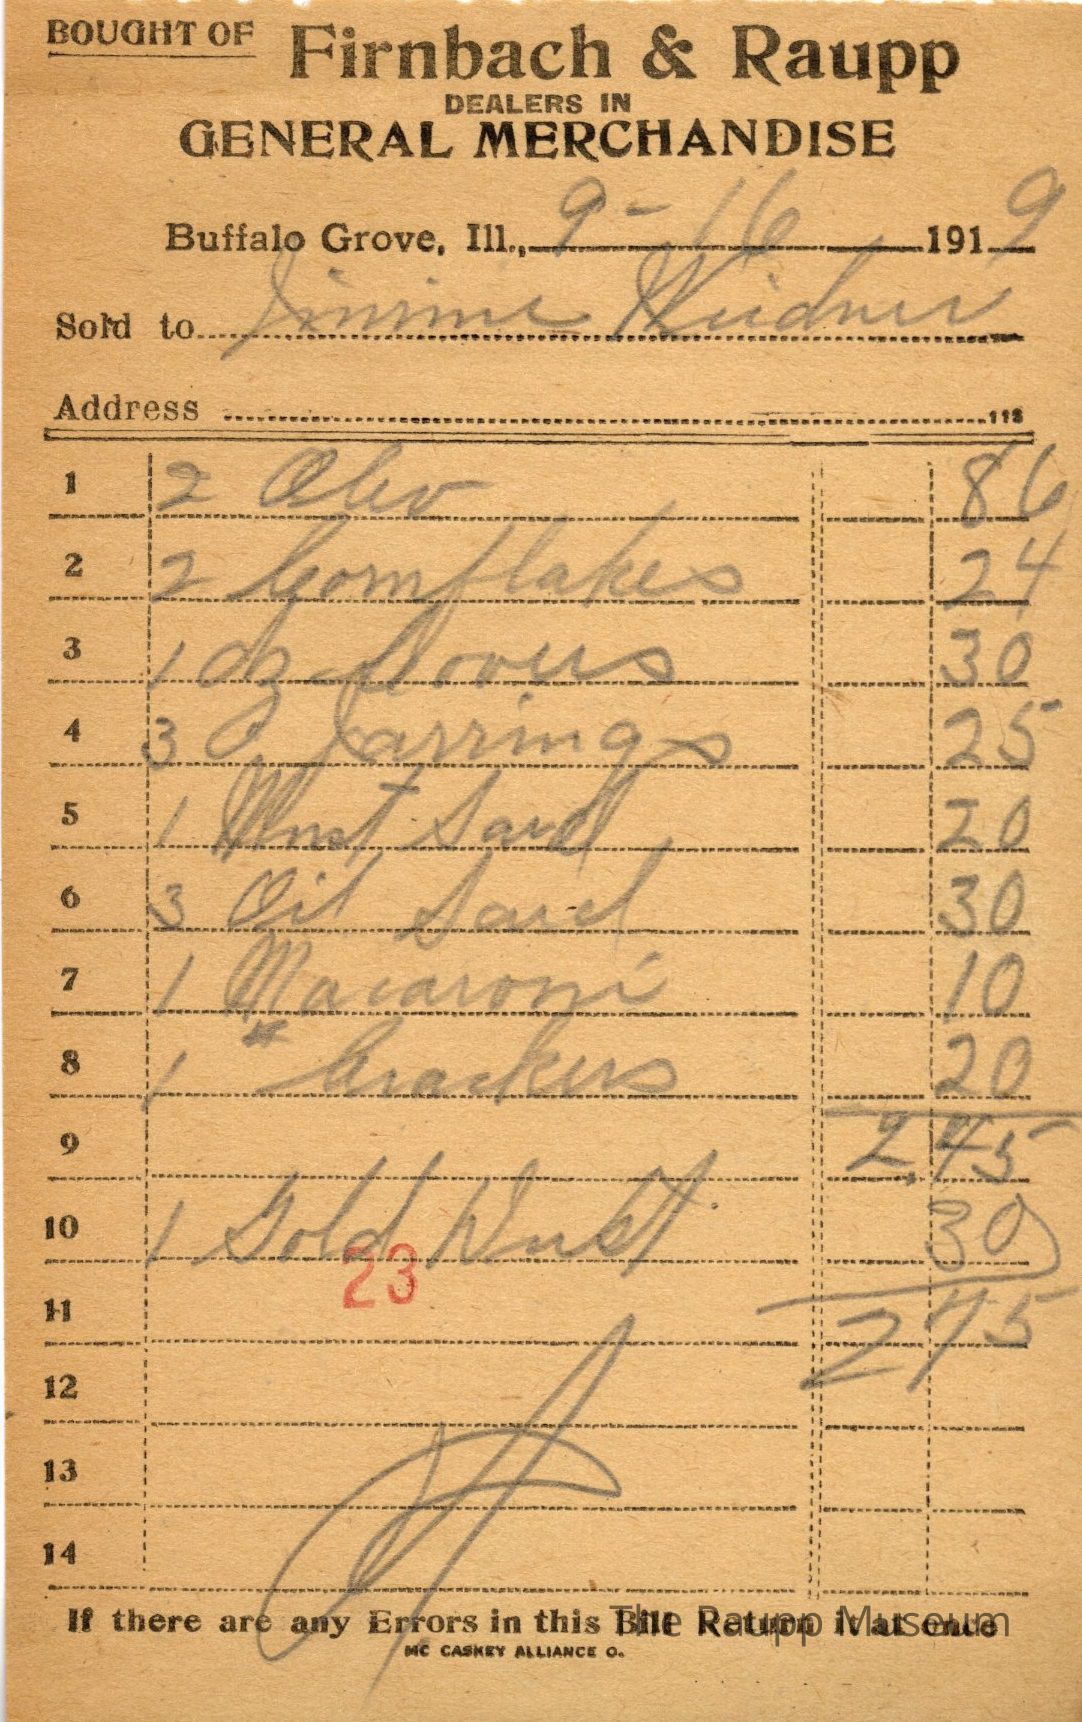 BOUGHT OF Firnbach & Raupp
DEALERS IN
GENERAL MERCHANDISE
Buffalo Grove, Ill., 9-16 1919
Sold to Jimmie Weidner
Address 118
1 2 Oleo 86
2 2 Cornflakes 24
3 1 dz 30
4 3 Jarrings 25
5 1 Must Sard 20
6 3 Oil Sard 30
7 1 Macaroni 10
8 1 # Crackers 20
9 2.45
10 1 Gold Dust 30
23
11 275
12
13
14
If there are any Errors in this Bill Return it at once
The Raupp Museum
MC CASKEY ALLIANCE O.